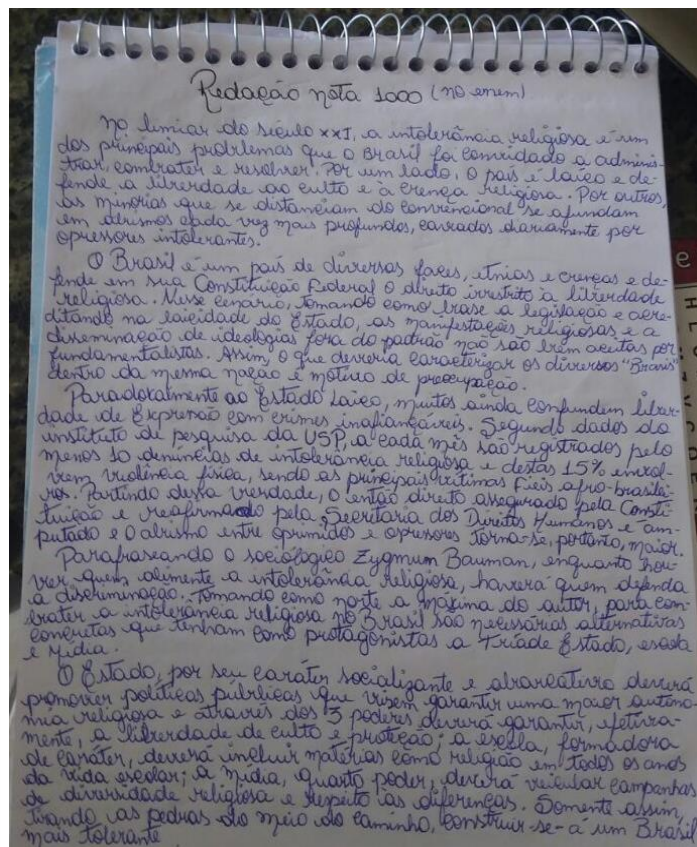 Redação nota 1000 (no enem)
No limiar do século XXI, a intolerância religiosa é um
dos principais problemas que o Brasil foi convidado a adminis-
trar, combater e resolver. Por um lado, o país é laico e de-
fende a liberdade ao culto e à crença religiosa. Por outros,
as minorias que se distanciam do convencional se afundam
em abismos cada vez mais profundos, cavados diariamente por
opressores intolerantes.
O Brasil é um país de diversas faces, etnias e crenças e de-
fende em sua Constituição Federal o direito irrestrito à liberdade
religiosa. Nesse cenário, tomando como base a legislação e acre-
ditando na laicidade do Estado, as manifestações religiosas e a
disseminação de ideologias fora do padrão não são bem aceitas por
fundamentalistas. Assim, o que deveria caracterizar os diversos "Brasis"
dentro da mesma nação é motivo de preocupação.
Paradoxalmente ao Estado Laico, muitos ainda confundem liber-
dade de Expressão com crimes inafiançáveis. Segundo dados do
instituto de pesquisa da USP, a cada mês são registrados pelo
menos 10 denúncias de intolerância religiosa e destas 15% envol-
vem violência física, sendo as principais vítimas fiéis afro-brasilei-
ros. Partindo dessa verdade, o então direito assegurado pela Consti-
tuição e reafirmado pela Secretaria dos Direitos Humanos é am-
putado e o abismo entre oprimidos e opressores torna-se, portanto, maior.
Parafraseando o sociólogico Zygmun Bauman, enquanto hou-
ver quem alimente a intolerância religiosa, haverá quem defenda
a discriminação. Tomando como norte a máxima do autor, para com-
bater a intolerância religiosa no Brasil são necessárias alternativas
concretas que tenham como protagonistas a tríade Estado, escola
e mídia.
O Estado, por seu caráter socializante e abarcativo deverá
promover políticas públicas que visem garantir uma maior autono-
mia religiosa e através dos 3 poderes deverá garantir, efetiva-
mente, a liberdade de culto e proteção; a escola, formadora
de caráter, deverá incluir matérias como religião em todos os anos
da vida escolar; a mídia, quarto poder, deverá veicular campanhas
de diversidade religiosa e respeito às diferenças. Somente assim,
tirando as pedras do meio do caminho, construir-se-á um Brasil
mais tolerante